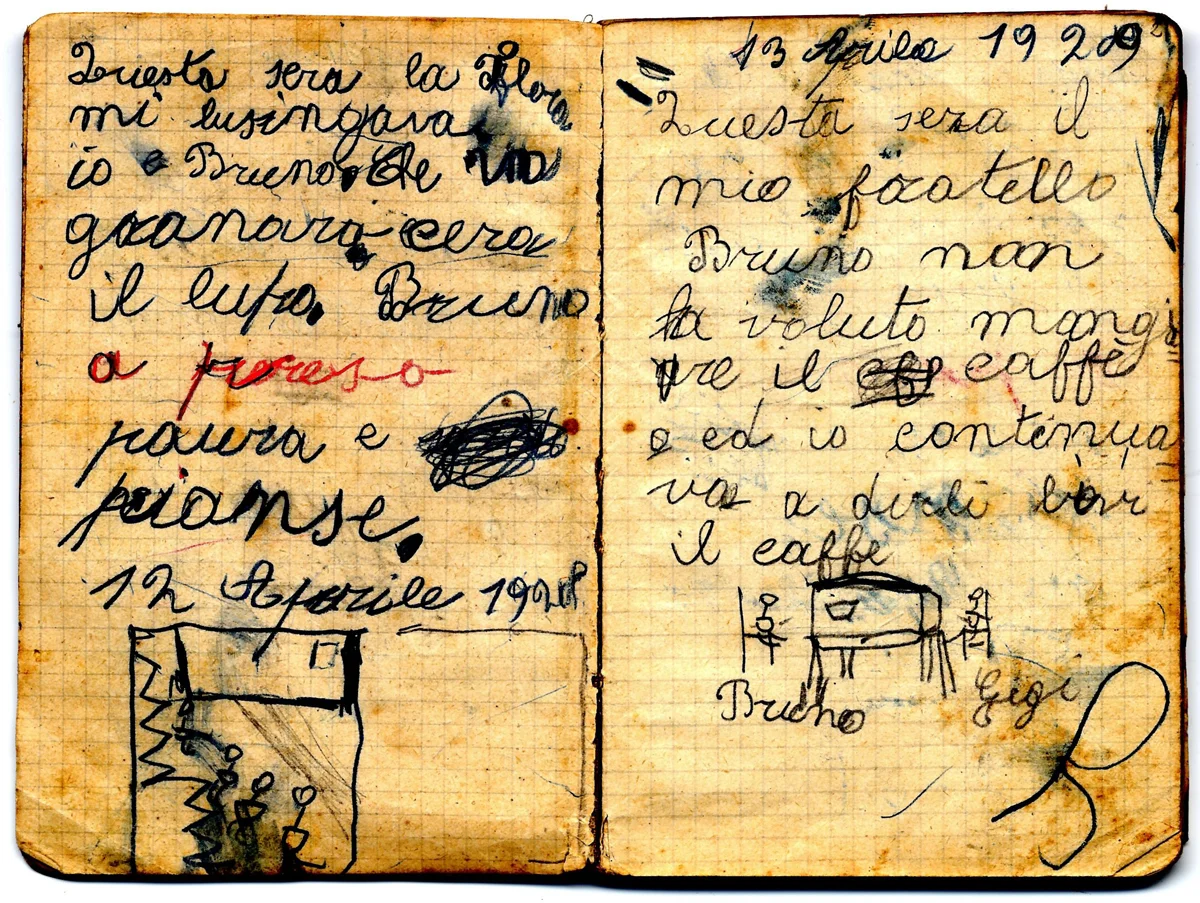 Questa sera la Flora
mi lusingava
io e Bruno, che in
granaro cera
il lupo. Bruno
a preso
paura e
pianse.
12 Aprile 1928
13 Aprile 1929
Questa sera il
mio fratello
Bruno non
ha voluto mangi
are il caffè
e ed io continua
va a dirli
il caffe
Bruno
Gigi